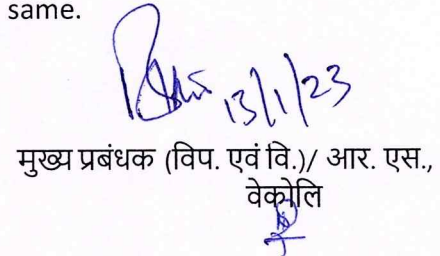 same.
13/1/23
मुख्य प्रबंधक (विप. एवं वि.)/ आर. एस.,
वेकोलि